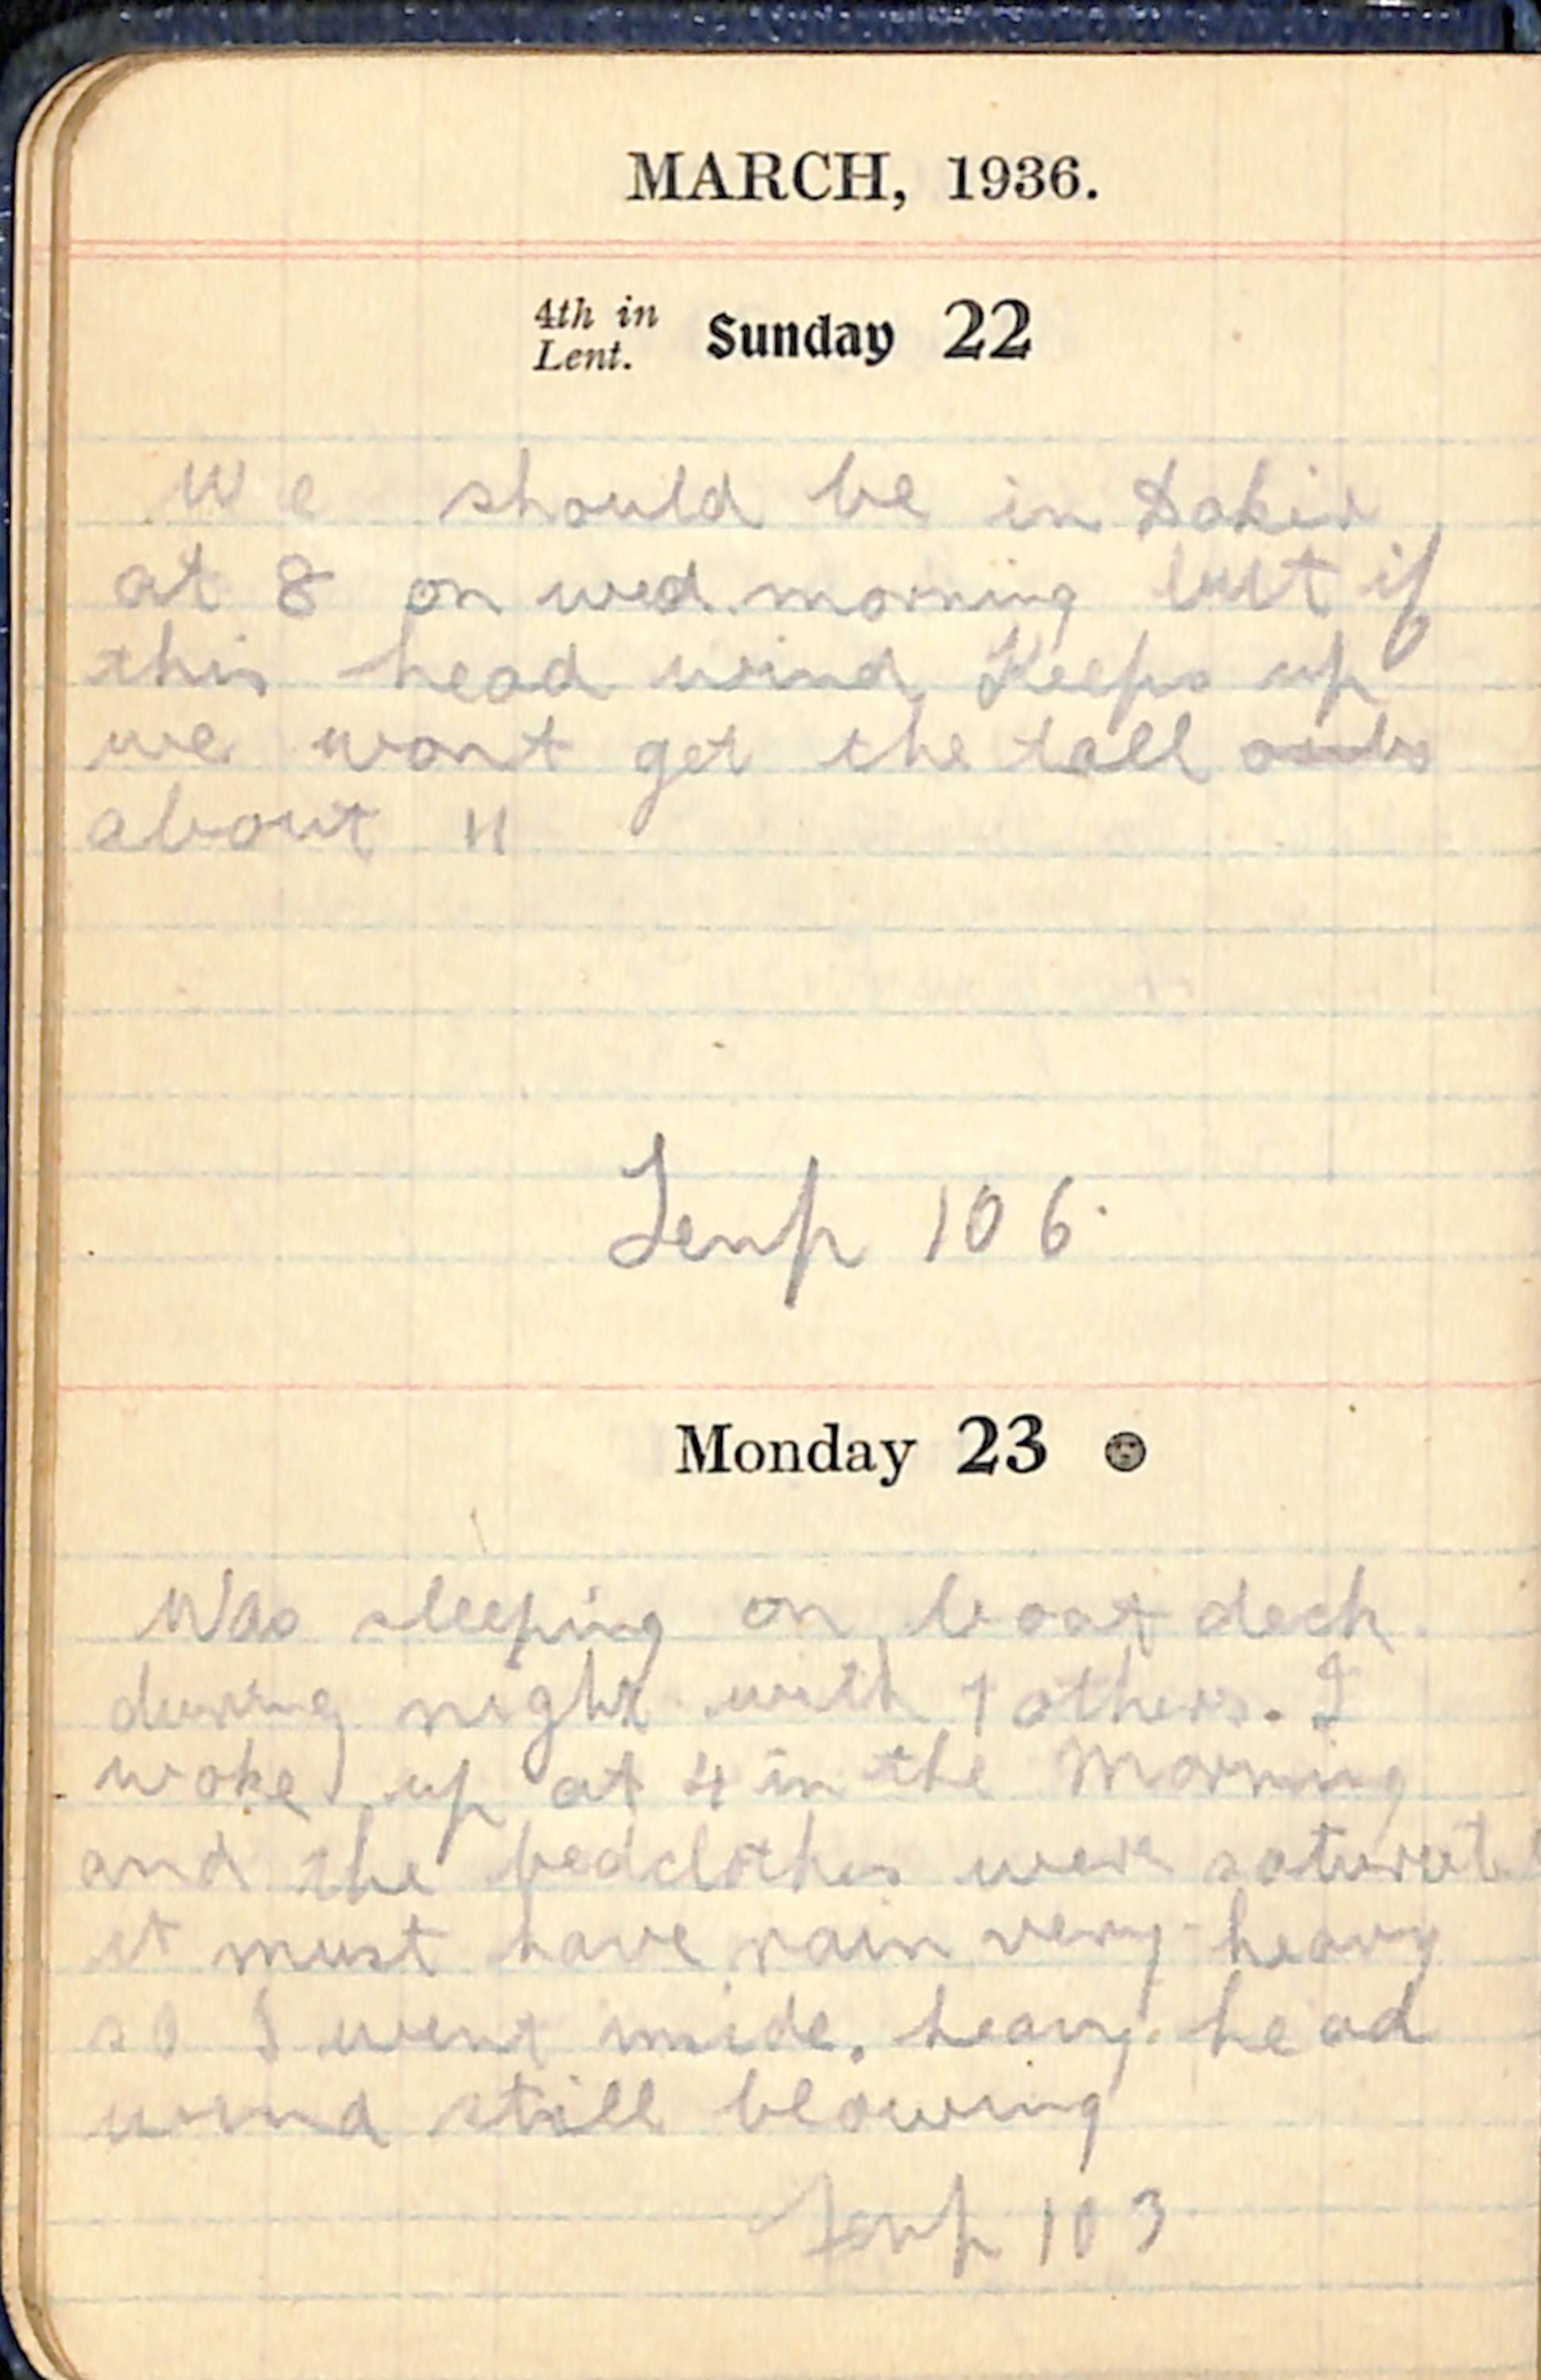 MARCH, 1936.
4th in Lent. Sunday 22
We should be in Dakir
at 8 on wed. morning but if
this head wind Keeps up
we wont get the tall
about 11
Temp 106
Monday 23
Was sleeping on boat deck
during night with 7 others. I
woke up at 4 in the Morning
and the bedclothes were saturate
it must have rain very heavy
so I went inside. heavy head
wind still blowing
Temp 103